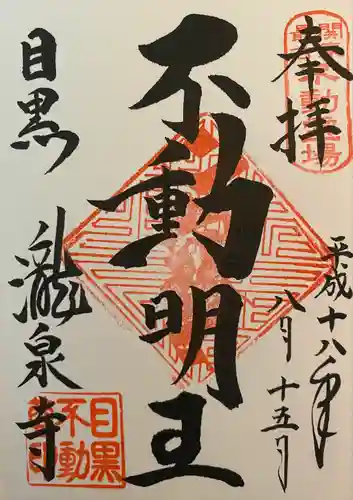 奉拝
関
最
不動霊場
平成十八年
八月十五日
不動明王
目黒
瀧泉寺
目黒
不動